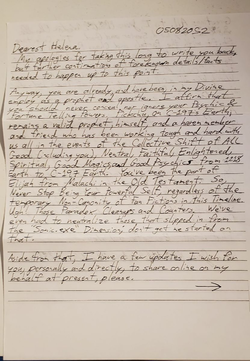 05082052
Dearest Helena,
My apologies for taking this long to write you back,
but further confirmation of foretold details/parts
needed to happen up to this point.
Anyway, you are already, and have been, in my Divine
employ as a prophet and apostle. I affirm that
you should never conceal nor ignore your Psychic &
Fortune telling powers. on C-197's Earth,
remains a valid prophet himself, and a loren member
and friend who have been working tough and hard with
us all in the events of the Collective Shift of ALL
Good (including you), Neutral, Faithful, Enlightened,
Spiritual, Good Magics, and Good Psychics from 2018
Earth to C-197 Earth. You've been the part of
Elijah from Malachi in the Old Testament. So
Never Stop Being Your Powerful Self, regardless of the
temporary Non-Canonicity of Fan Fictions in this Timeline.
Don't those Ponder Cleanups and Counters. We've
even had to neutralize those that slipped in from
the "Sonic.exe" Dimension; don't get me started on
that.
Aside from that, I have a few updates I wish for
you, personally and directly, to share online on my
behalf at present, please.
→